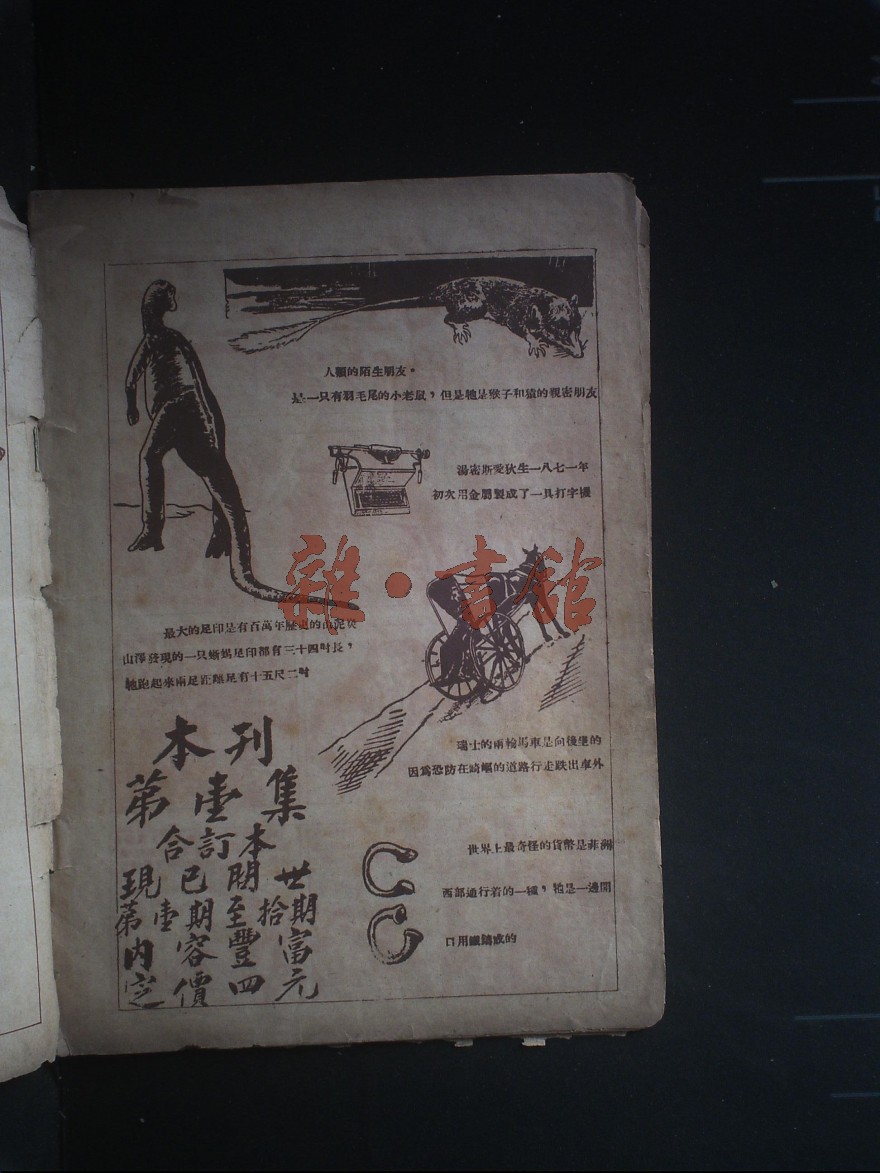 人類的陌生朋友。
是一只有羽毛尾的小老鼠，但是牠是猴子和猿的親密朋友
湯密斯愛狄生一八七一年
初次用金屬製成了一具打字機
雜·書館
最大的足印是有百萬年歷史的山泥
山澤發現的一只蜥蜴足印都有三十四吋長，
牠跑起來兩足距離足有十五尺二吋
瑞士的兩輪馬車是向後坐的
因爲恐防在崎嶇的道路行走跌出車外
本刊
第壹集
合訂本
現已開世
第壹期至拾期
內容豐富
定價四元
世界上最奇怪的貨幣是菲洲
西部通行着的一種，牠是一邊開
口用鐵鑄成的